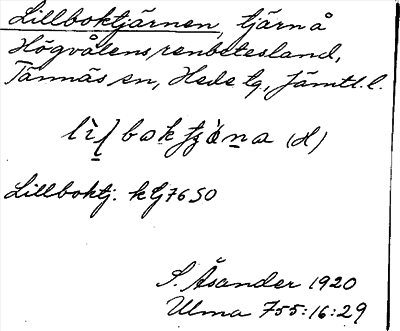 Lillboktjärnen, tjärn å
Högvålens renbetesland,
Tännäs sn, Hede tg, Jämtl. l.
Lillboktj. k tj 7650
S. Åsander 1920
Ulma 755:16:29